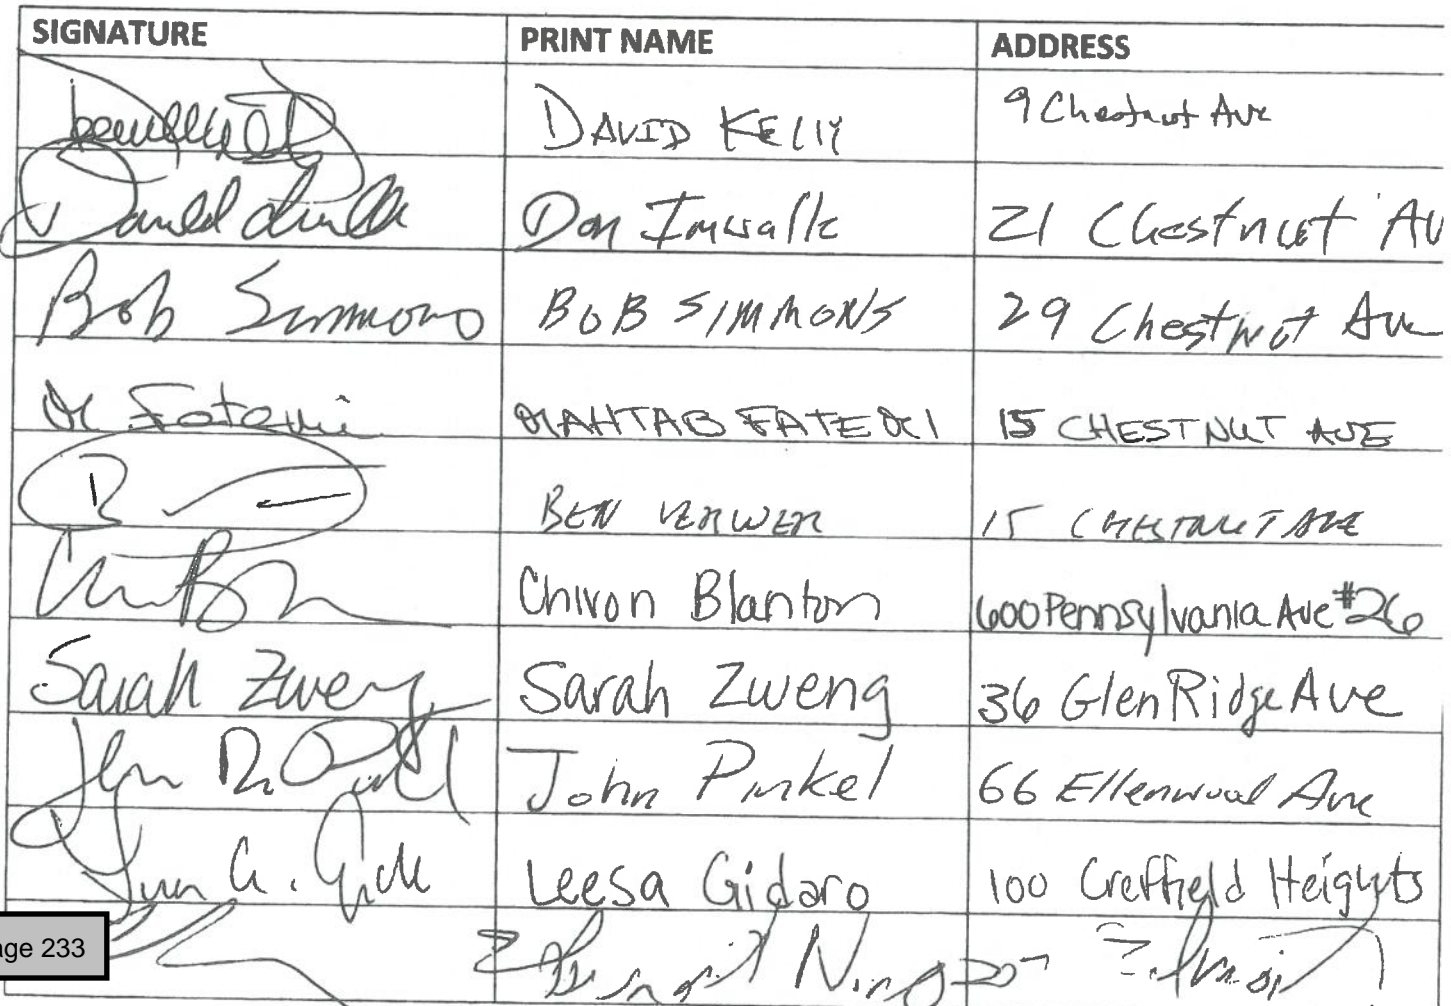 SIGNATURE PRINT NAME ADDRESS
DAVID KELLY 9 Chestnut Ave
Don Imwalle 21 Chestnut Av
Bob Simmons BOB SIMMONS 29 Chestnut Ave
M Fatemi MAHTAB FATEMI 15 CHESTNUT AVE
BEN VERWER 15 CHESTNUT AVE
Chiron Blanton 600 Pennsylvania Ave #26
Sarah Zweng Sarah Zweng 36 Glen Ridge Ave
John Pinkel 66 Ellenwood Ave
Leesa Gidaro 100 Creffield Heights
age 233